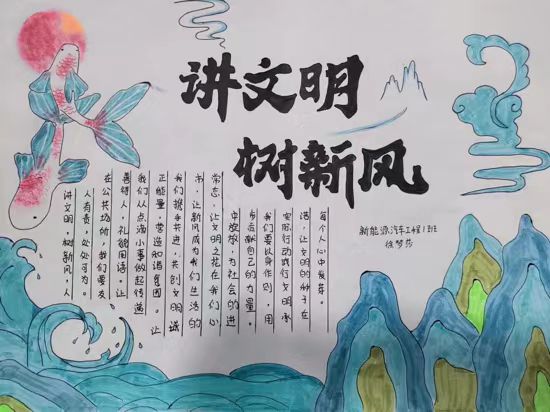 讲文明
树新风
新能源汽车工程1班
徐梦莎
讲文明，树新风，人
人有责，处处可为。
在公共场所，我们要友
善待人，礼貌用语。让
我们从点滴小事做起传递
正能量，营造和谐氛围。让
我们携手共进，共创文明城
市，让新风成为我们生活的
常态，让文明之花在我们心
中绽放，为社会的进
步贡献自己的力量。
我们要以身作则，用
实际行动践行文明承
诺，让文明的种子在
每个人心中发芽。